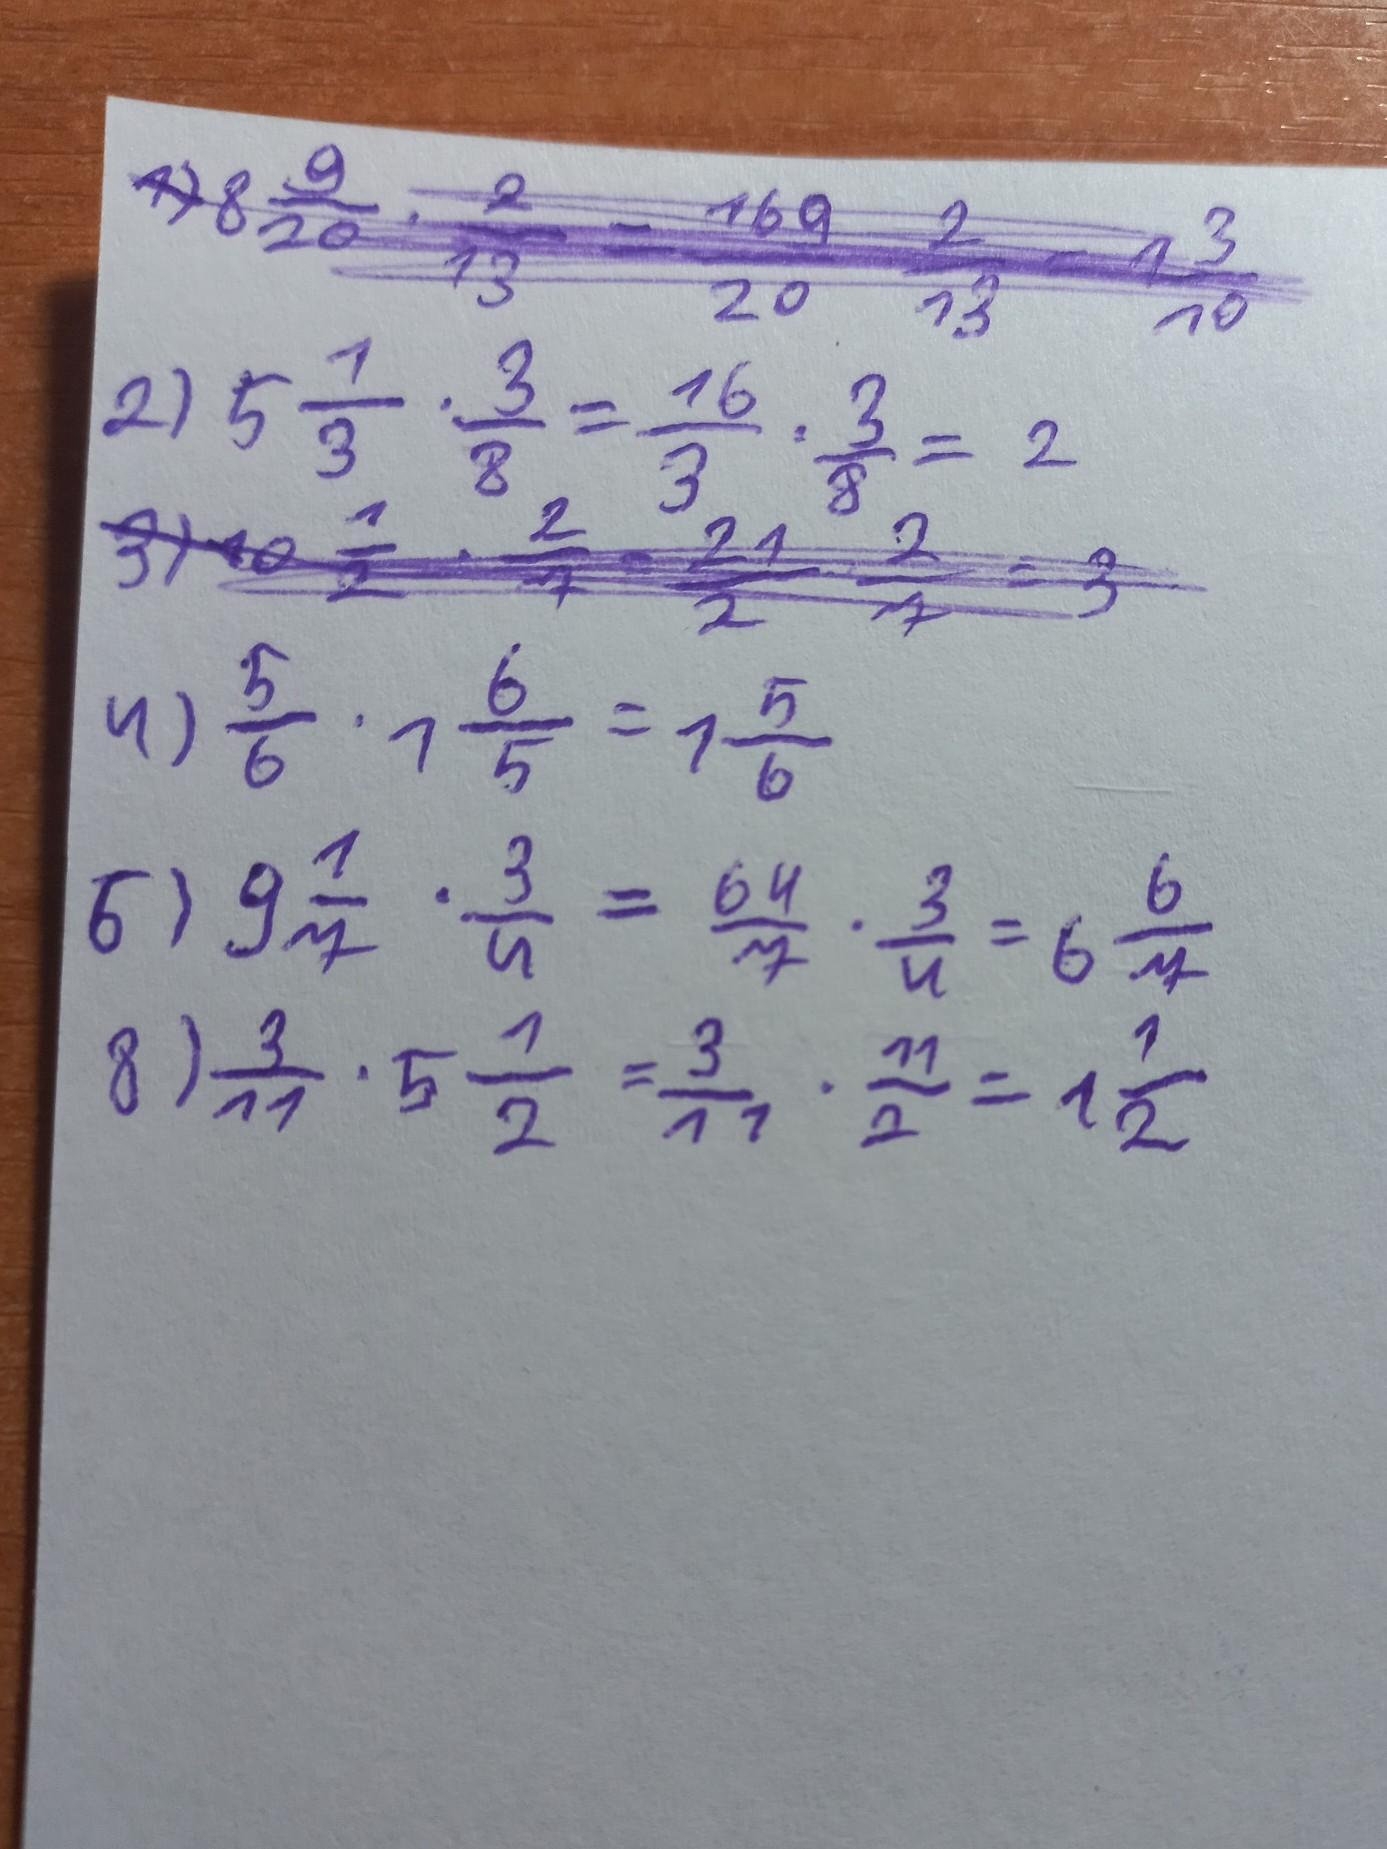 1) 8 9/20 · 2/13 = 169/20 · 2/13 = 1 3/10
2) 5 1/3 · 3/8 = 16/3 · 3/8 = 2
3) 10 1/2 · 2/7 = 21/2 · 2/7 = 3
4) 5/6 · 1 6/5 = 1 5/6
5) 9 1/7 · 3/4 = 64/7 · 3/4 = 6 6/7
8) 3/11 · 5 1/2 = 3/11 · 11/2 = 1 1/2